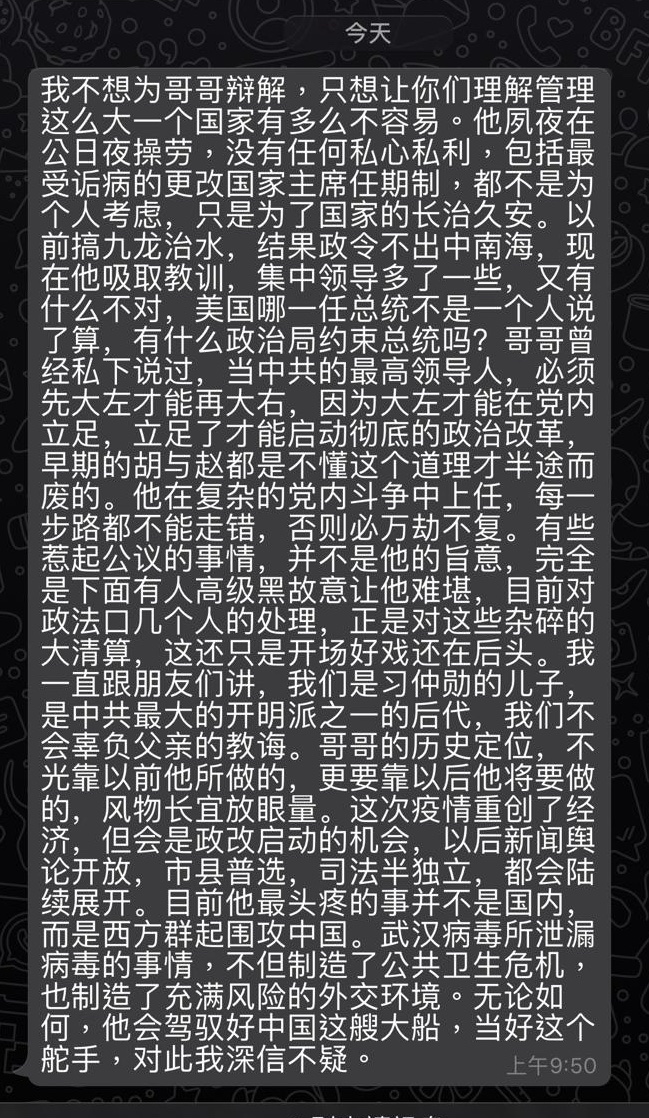 今天
我不想为哥哥辩解，只想让你们理解管理
这么大一个国家有多么不容易。他夙夜在
公日夜操劳，没有任何私心私利，包括最
受诟病的更改国家主席任期制，都不是为
个人考虑，只是为了国家的长治久安。以
前搞九龙治水，结果政令不出中南海，现
在他吸取教训，集中领导多了一些，又有
什么不对，美国哪一任总统不是一个人说
了算，有什么政治局约束总统吗？哥哥曾
经私下说过，当中共的最高领导人，必须
先大左才能再大右，因为大左才能在党内
立足，立足了才能启动彻底的政治改革，
早期的胡与赵都是不懂这个道理才半途而
废的。他在复杂的党内斗争中上任，每一
步路都不能走错，否则必万劫不复。有些
惹起公议的事情，并不是他的旨意，完全
是下面有人高级黑故意让他难堪，目前对
政法口几个人的处理，正是对这些杂碎的
大清算，这还只是开场好戏还在后头。我
一直跟朋友们讲，我们是习仲勋的儿子，
是中共最大的开明派之一的后代，我们不
会辜负父亲的教诲。哥哥的历史定位，不
光靠以前他所做的，更要靠以后他将要做
的，风物长宜放眼量。这次疫情重创了经
济，但会是政改启动的机会，以后新闻舆
论开放，市县普选，司法半独立，都会陆
续展开。目前他最头疼的事并不是国内，
而是西方群起围攻中国。武汉病毒所泄漏
病毒的事情，不但制造了公共卫生危机，
也制造了充满风险的外交环境。无论如
何，他会驾驭好中国这艘大船，当好这个
舵手，对此我深信不疑。
上午9:50